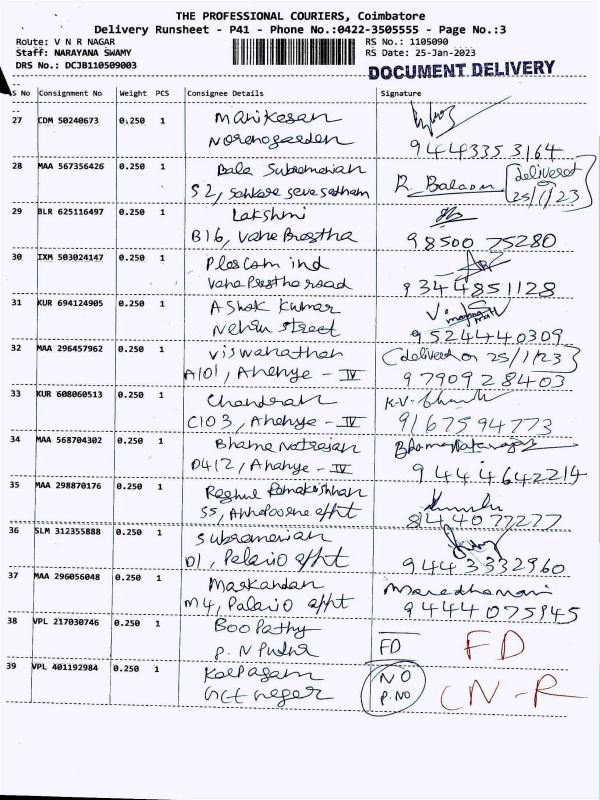 THE PROFESSIONAL COURIERS, Coimbatore
Delivery Runsheet - P41 - Phone No.:0422-3505555 - Page No.:3
Route: V N R NAGAR RS No.: 1105090
Staff: NARAYANA SWAMY RS Date: 25-Jan-2023
DRS No.: DCJB110509003 DOCUMENT DELIVERY
S No Consignment No Weight PCS Consignee Details Signature
27 CDM 50240673 0.250 1 Manikesan
94433 53164
28 MAA 567356426 0.250 1 Bala Subramanian delivered
S2, R. Balaom 25/1/23
29 BLR 625116497 0.250 1 Lakshmi
B16, Vana Prastha 98500 75280
30 IXM 503024147 0.250 1 Ploscom ind
Vana Prastha road 9344851128
31 KUR 694124905 0.250 1 Ashok Kumar
Nehru street 9524440309
32 MAA 296457962 0.250 1 Viswanathan delivered on 25/1/23
A101, Ananya - IV 97909 28403
33 KUR 608060513 0.250 1 Chandran K.V.
C103, Ananya - IV 9167594773
34 MAA 568704302 0.250 1 Bhama Natrajan
D412, Ananya - IV 9444642214
35 MAA 298870176 0.250 1 Raghul Ramakrishnan
S5, apht 8444077277
36 SLM 312355888 0.250 1 Subramanian
D1, Palazio apht 9443332960
37 MAA 296056048 0.250 1 Maskandan
M4, Palazio apht 9444075945
38 VPL 217030746 0.250 1 Boopathy FD FD
P. N Pudur
39 VPL 401192984 0.250 1 Kalpagam NO CN-R
GCT nagar P.NO